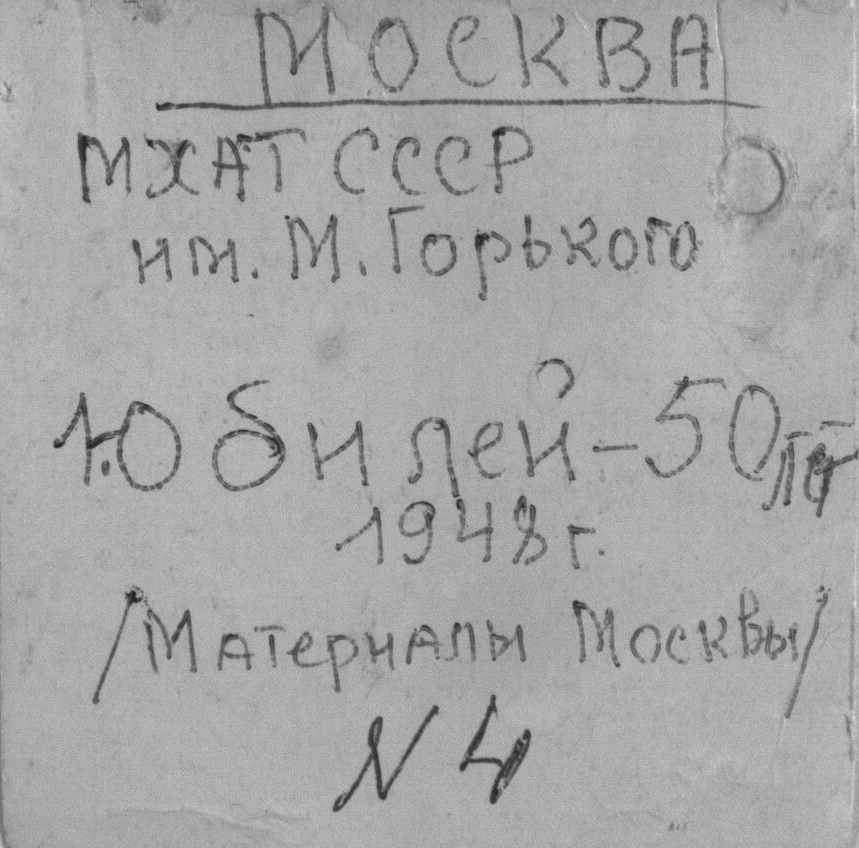 МОСКВА
МХАТ СССР
им. М. Горького
Юбилей - 50 лет
1948 г.
/Материалы Москвы/
N 4